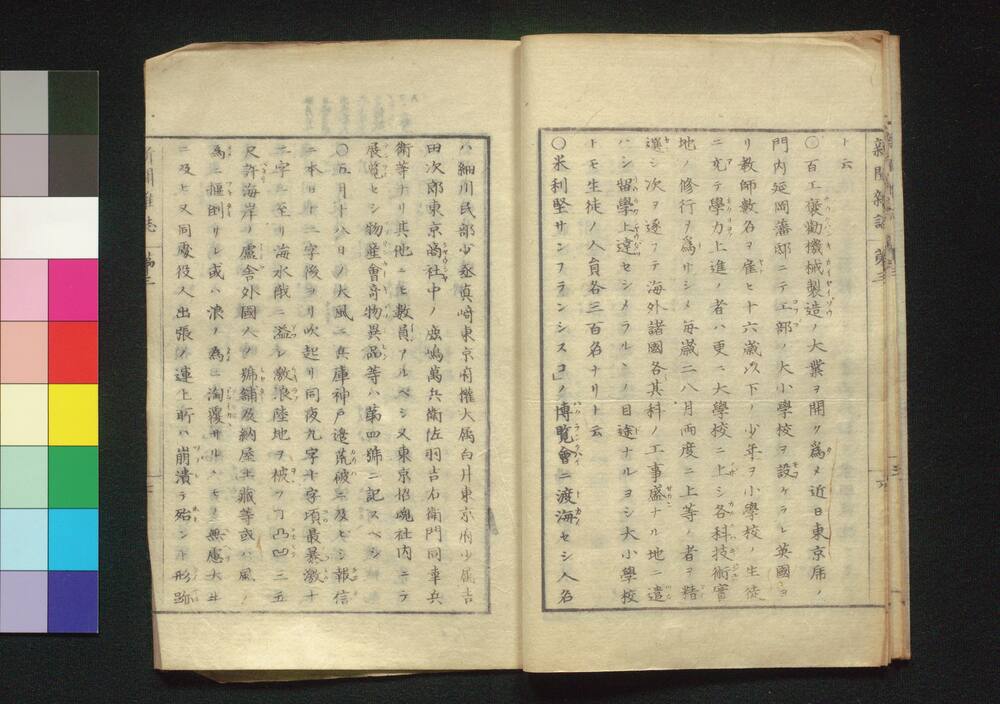 新聞雑誌 第三
十六
〇百工褒勸機械製造ノ大業ヲ開ク為メ近日東京虎ノ
門内延岡藩邸ニテ工部ノ大小學校ヲ設ケラレ英國ヨ
リ教師數名ヲ雇ヒ十六歳以下ノ少年ヲ小學校ノ生徒
ニ充テ學力上進ノ者ハ更ニ大學校ニ上シ各科技術實
地ノ修行ヲ為サシメ毎歳二八月両度ニ上等ノ者ヲ精
選シ次ヲ逐フテ海外諸國各其科ノ工事盛ナル地ニ遣
ハシ留學上達セシメラルヽノ目途ナルヨシ大小學校
トモ生徒ノ人員各三百名ナリト云
〇米利堅サンフランシスコ」ノ博覧會ニ渡海セシ人名
ハ細川民部少丞真崎東京府權大属白井東京府少属吉
田次郎東京商社中ノ鹿嶋萬兵衛佐羽吉右衛門同車兵
衛等ナリ其他ニモ數員アルベシ又東京招魂社内ニテ
展覧セシ物産會奇物異品等ハ第四號ニ記スベシ
〇五月十八日ノ大風ニ兵庫神戸邊荒破ニ及ビシ報信
ニ本日十二字後ヨリ吹起リ同夜九字十字頃最暴激十
二字ニ至リ海水俄ニ溢レ激浪陸地ヲ被フ凸凹三五
尺許海岸ノ盧舎外國人ノ㷀鋪及納屋土蔵等或ハ風ノ
為ニ堰倒サレ或ハ浪ノ為ニ淘覆サルヽモノ無慮大半
ニ及ヒ又同處役人出張ノ運上所ハ崩潰ラ殆ント形跡
新聞雑誌 第三